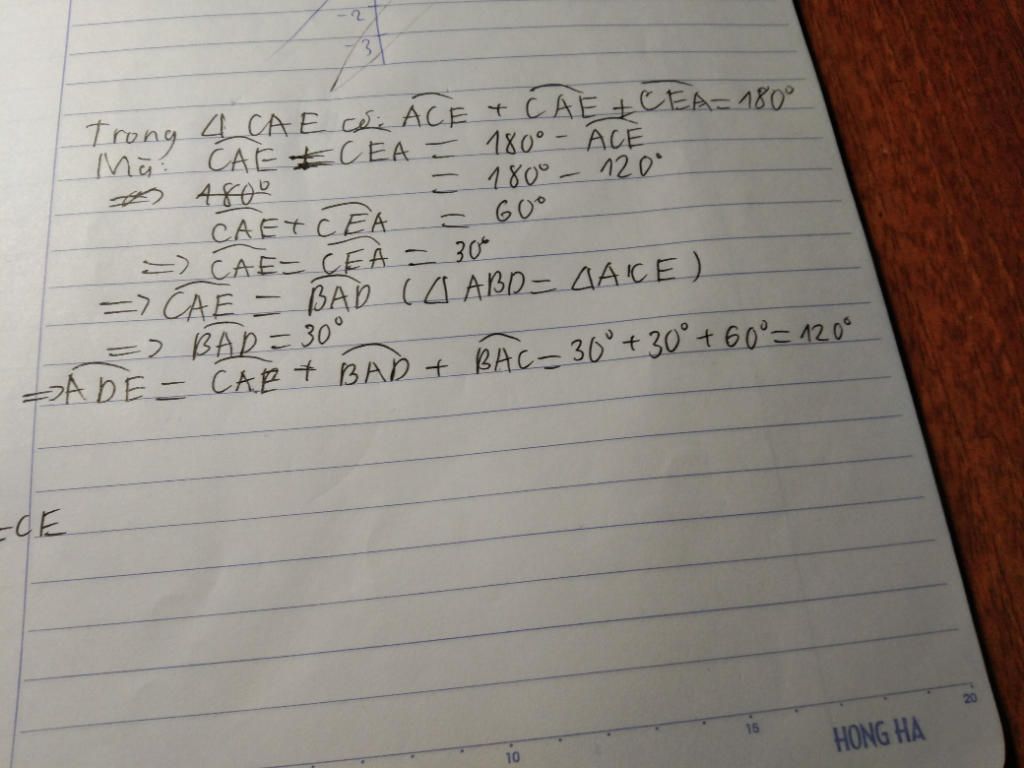 -2
-3
Trong Δ CAE có: ACE + CAE + CEA = 180°
Mà: CAE + CEA = 180° - ACE
=> 180° = 180° - 120°
CAE + CEA = 60°
=> CAE = CEA = 30°
=> CAE = BAD (Δ ABD = Δ ACE)
=> BAD = 30°
=> ADE = CAE + BAD + BAC = 30° + 30° + 60° = 120°
=CE
10 15 20
HONG HA